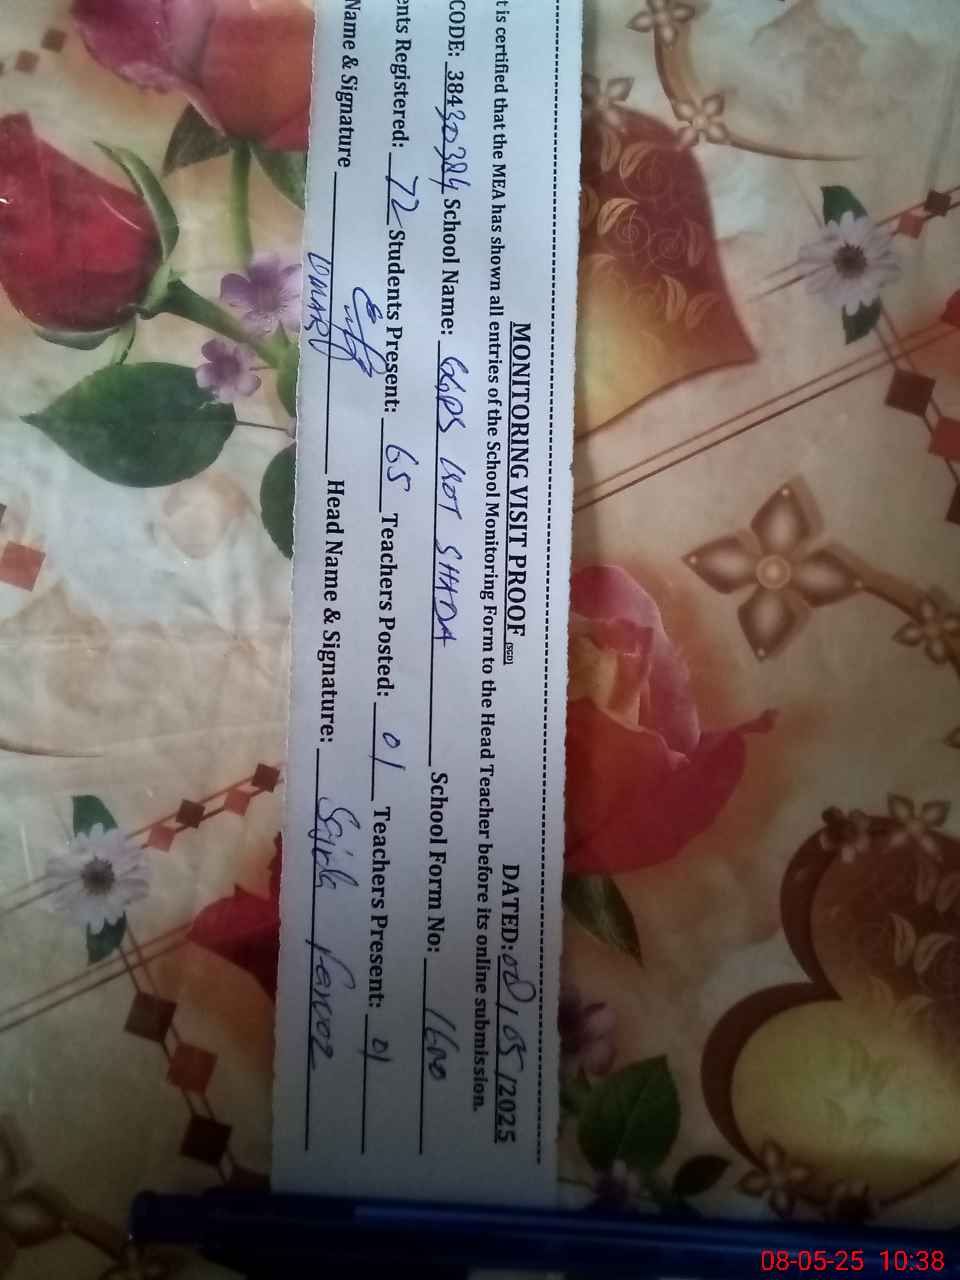 MONITORING VISIT PROOF (SGD) DATED: 08/05/2025
t is certified that the MEA has shown all entries of the School Monitoring Form to the Head Teacher before its online submission.
CODE: 38430384 School Name: GGPS KOT SHADA School Form No: 1600
ents Registered: 72 Students Present: 65 Teachers Posted: 01 Teachers Present: 01
Name & Signature UMAR Head Name & Signature: Sajida Parvez
08-05-25 10:38